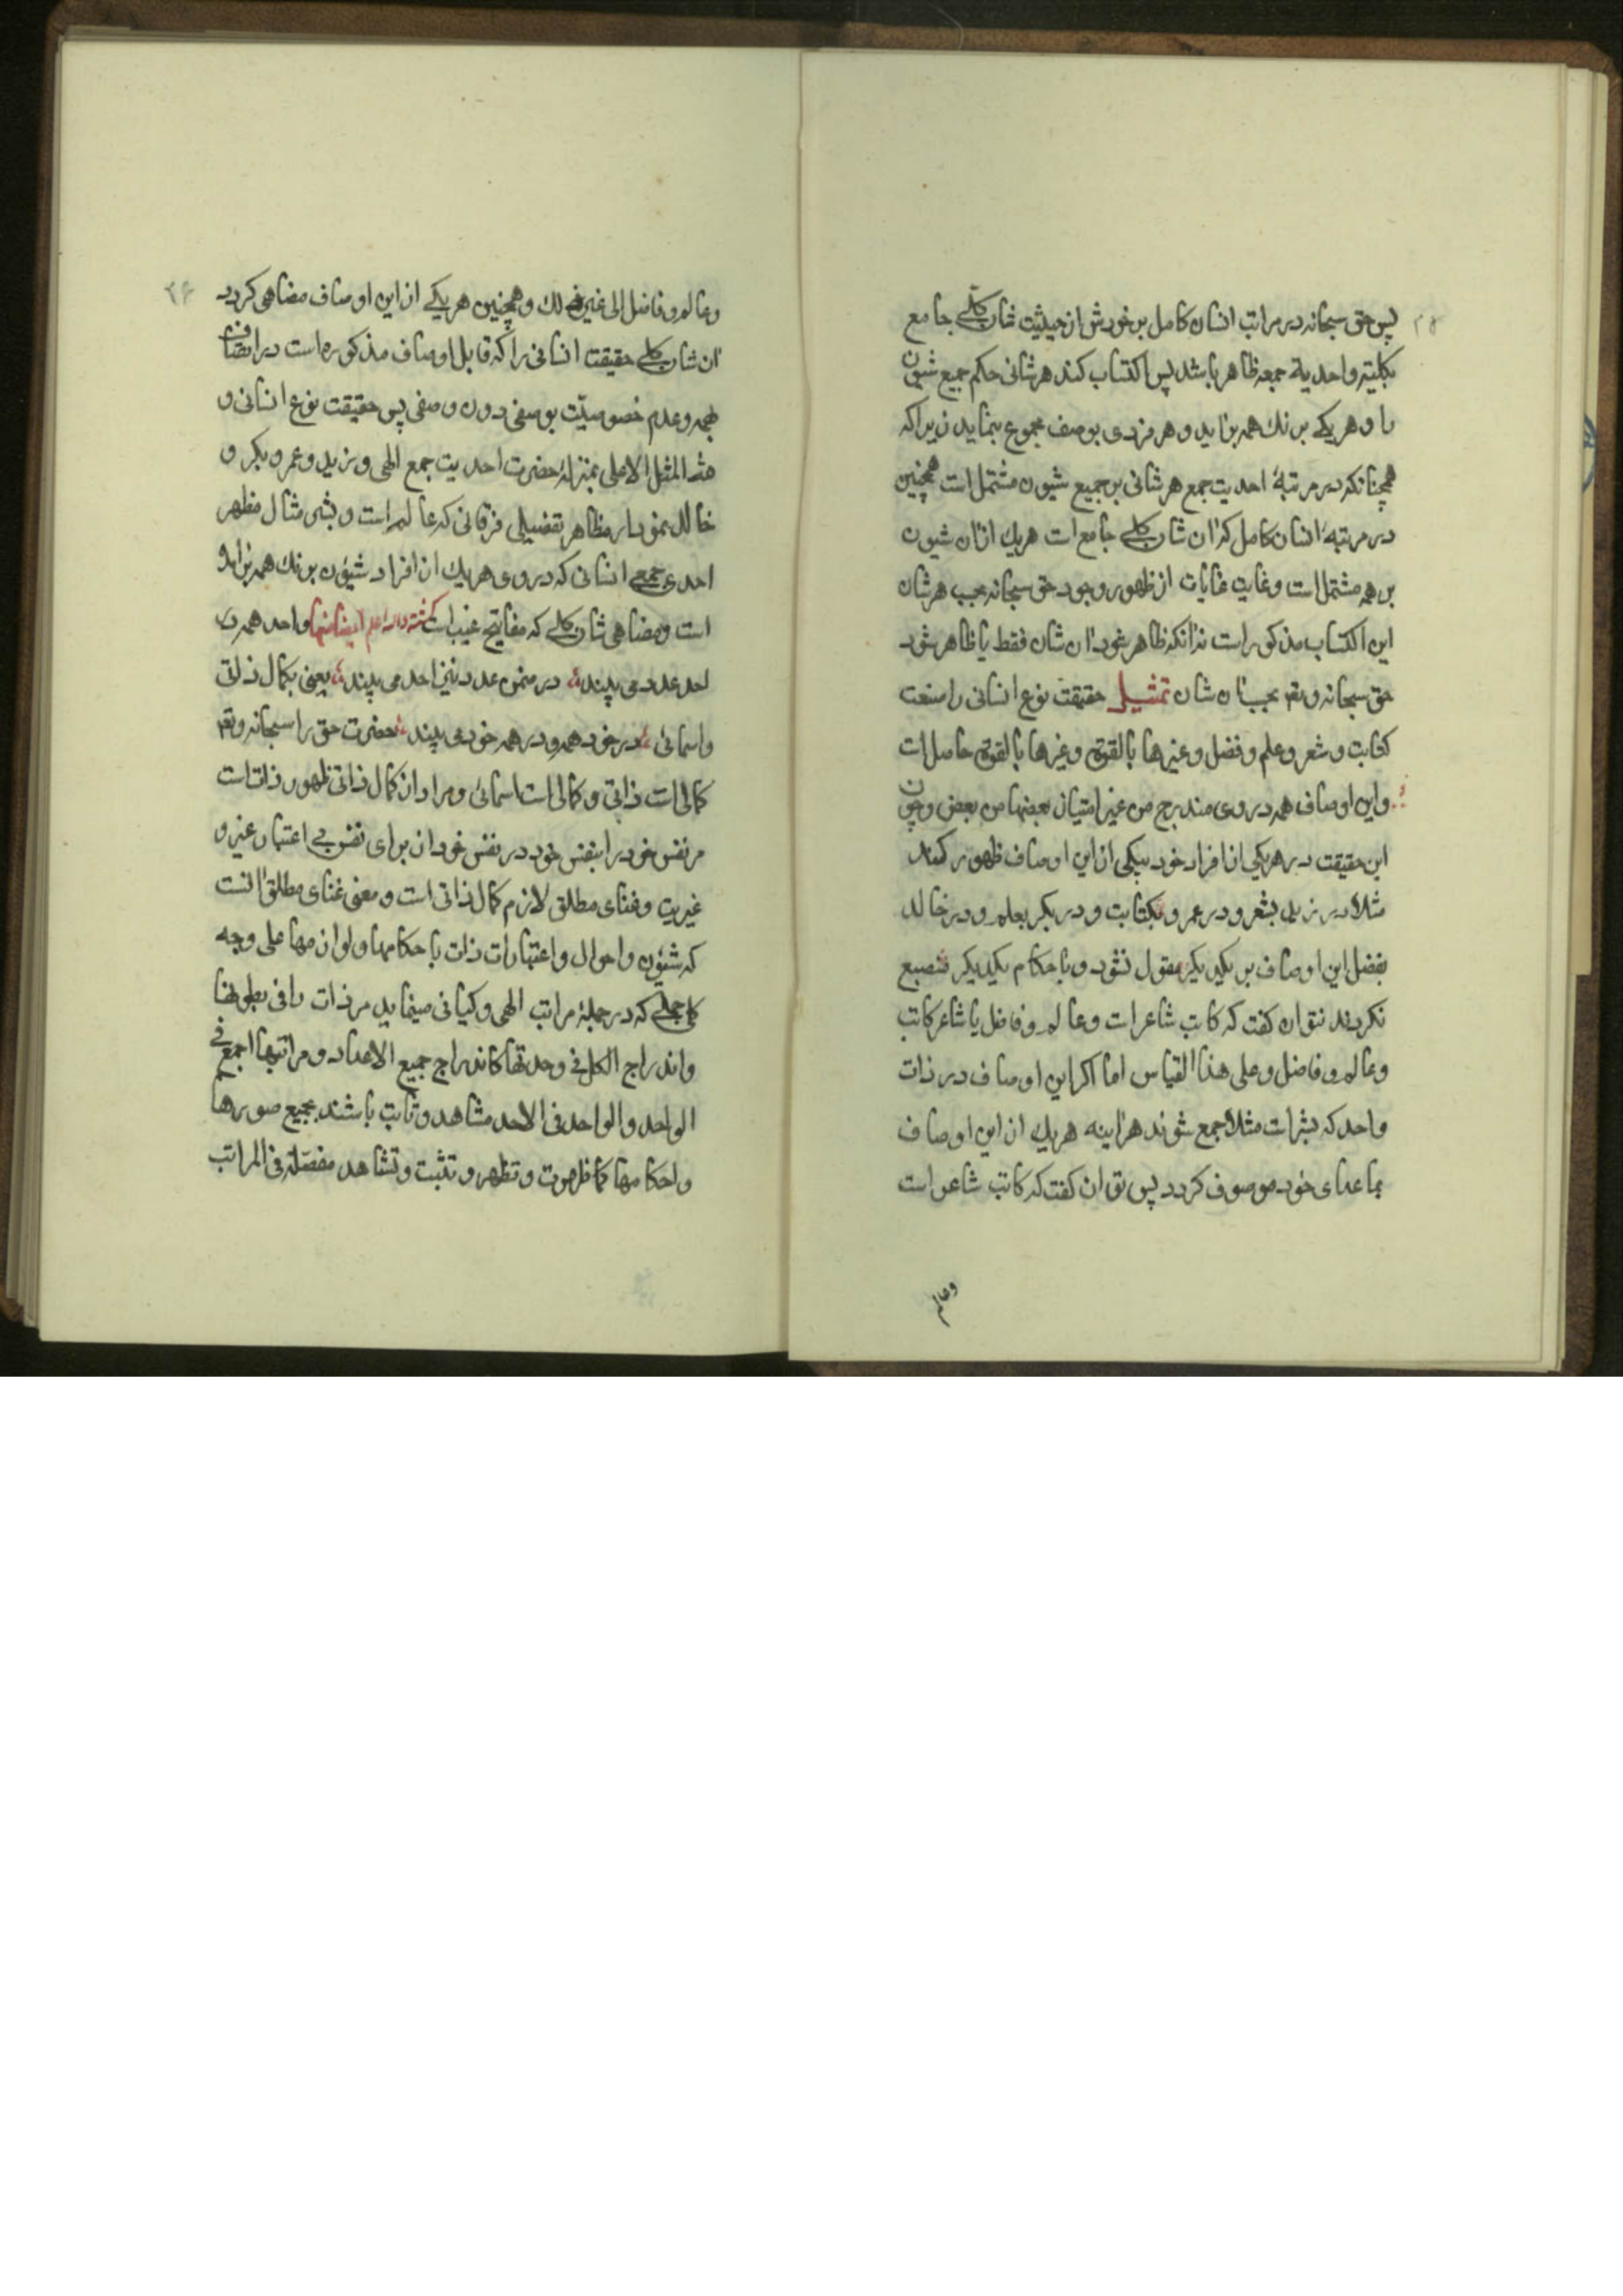 پس حق سبحانه در مراتب انسان کامل بر خودش از حیثیت شان کلّے جامع
بکلیته واحدیة جمعه ظاهر باشد پس اکتساب کند هر شانی حکم جمیع شیون
را و هر یکے برنك همه بر اید و هر فردی بوصف مجموع بنماید زیرا که
همچنانکه در مرتبهٔ احدیت جمع هر شانی بر جمیع شیون مشتمل است همچنین
در مرتبهٔ انسان کامل که ان شان کلے جامع است هریك ازان شیون
بر همه مشتمل است و غایت غایات از ظهور وجود حق سبحانه بحسب هر شان
این اکتساب مذکور است نه انکه ظاهر شود ان شان فقط یا ظاهر شود
حق سبحانه و تعه بحسب ان شان تمثیلی حقیقت نوع انسانی را صنعت
کتابت و شعر و علم و فضل و غیرها بالقوة وغیرها بالقوة حاصل است
و این اوصاف همه در وی مندرج من غیر امتیاز بعضها من بعض و چون
این حقیقت در هر یکی از افراد خود بیکی از این اوصاف ظهور کند
مثلا در زید بشعر و در عمرو بکتابت و در بکر بعلم و در خالد
بفضل این اوصاف بر یکدیکر مقول نشود و باحکام یکدیکر منصبغ
نکردند نتوان کفت که کاتب شاعر است و عالم و فاضل یا شاعر کاتب
و عالم و فاضل و علی هذا القیاس اما اکر این اوصاف در ذات
واحد که بشر است مثلا جمع شوند هر اینه هر یك از این اوصاف
بما عدای خود موصوف کردد پس توان کفت که کاتب شاعر است
وعالم
و عالم و فاضل الی غیر ذلك و همچنین هر یکے از این اوصاف مضاهی کردد
ان شان کلے حقیقت انسانی را که قابل اوصاف مذکوره است در اتصاف
بهمه و عدم خصوصیّت بوصفی دون وصفی پس حقیقت نوع انسانی و
لله المثل الاعلی بمنزلهٔ حضرت احدیت جمع الهی و زید و عمرو و بکر و
خالد نمودار مظاهر تفضیلی فرقانی که عالم است و بشر مثال مظهر
احدی جمعے انسانی که در وی هر یك از افراد شیون برنك همه بر امده
است و مضاهی شان کلے که مفاتیح غیب است کشته والله اعلم ایضا منها واحد همه در
احد عدد می بیند در ضمن عدد نیز احد می بیند یعنی بکمال ذاتی
و اسمائی در خود همه و در همه خود می بیند حضرت حق را سبحانه و تعه
کمالی است ذاتی و کمالی است اسمائی و مراد از کمال ذاتی ظهور ذات است
مر نفس خود را بنفس خود در نفس خود از برای نفس بے اعتبار غیر و
غیریت و غنای مطلق لازم کمال ذاتی است و معنی غنای مطلق انست
که شیون و احوال و اعتبارات ذات باحکامها و لوازمها علی وجه
کلی جملے که در جملهٔ مراتب الهی و کیانی مینماید مر ذات را فی بطونها
و اندراج الکل فی وحدتها کاندراج جمیع الاعداد و مراتبها اجمع فی
الواحد و الواحد فی الاحد مشاهد و ثابت باشند بجمیع صورها
و احکامها کما ظهرت و تظهر و تثبت و تشاهد مفصّلة فی المراتب